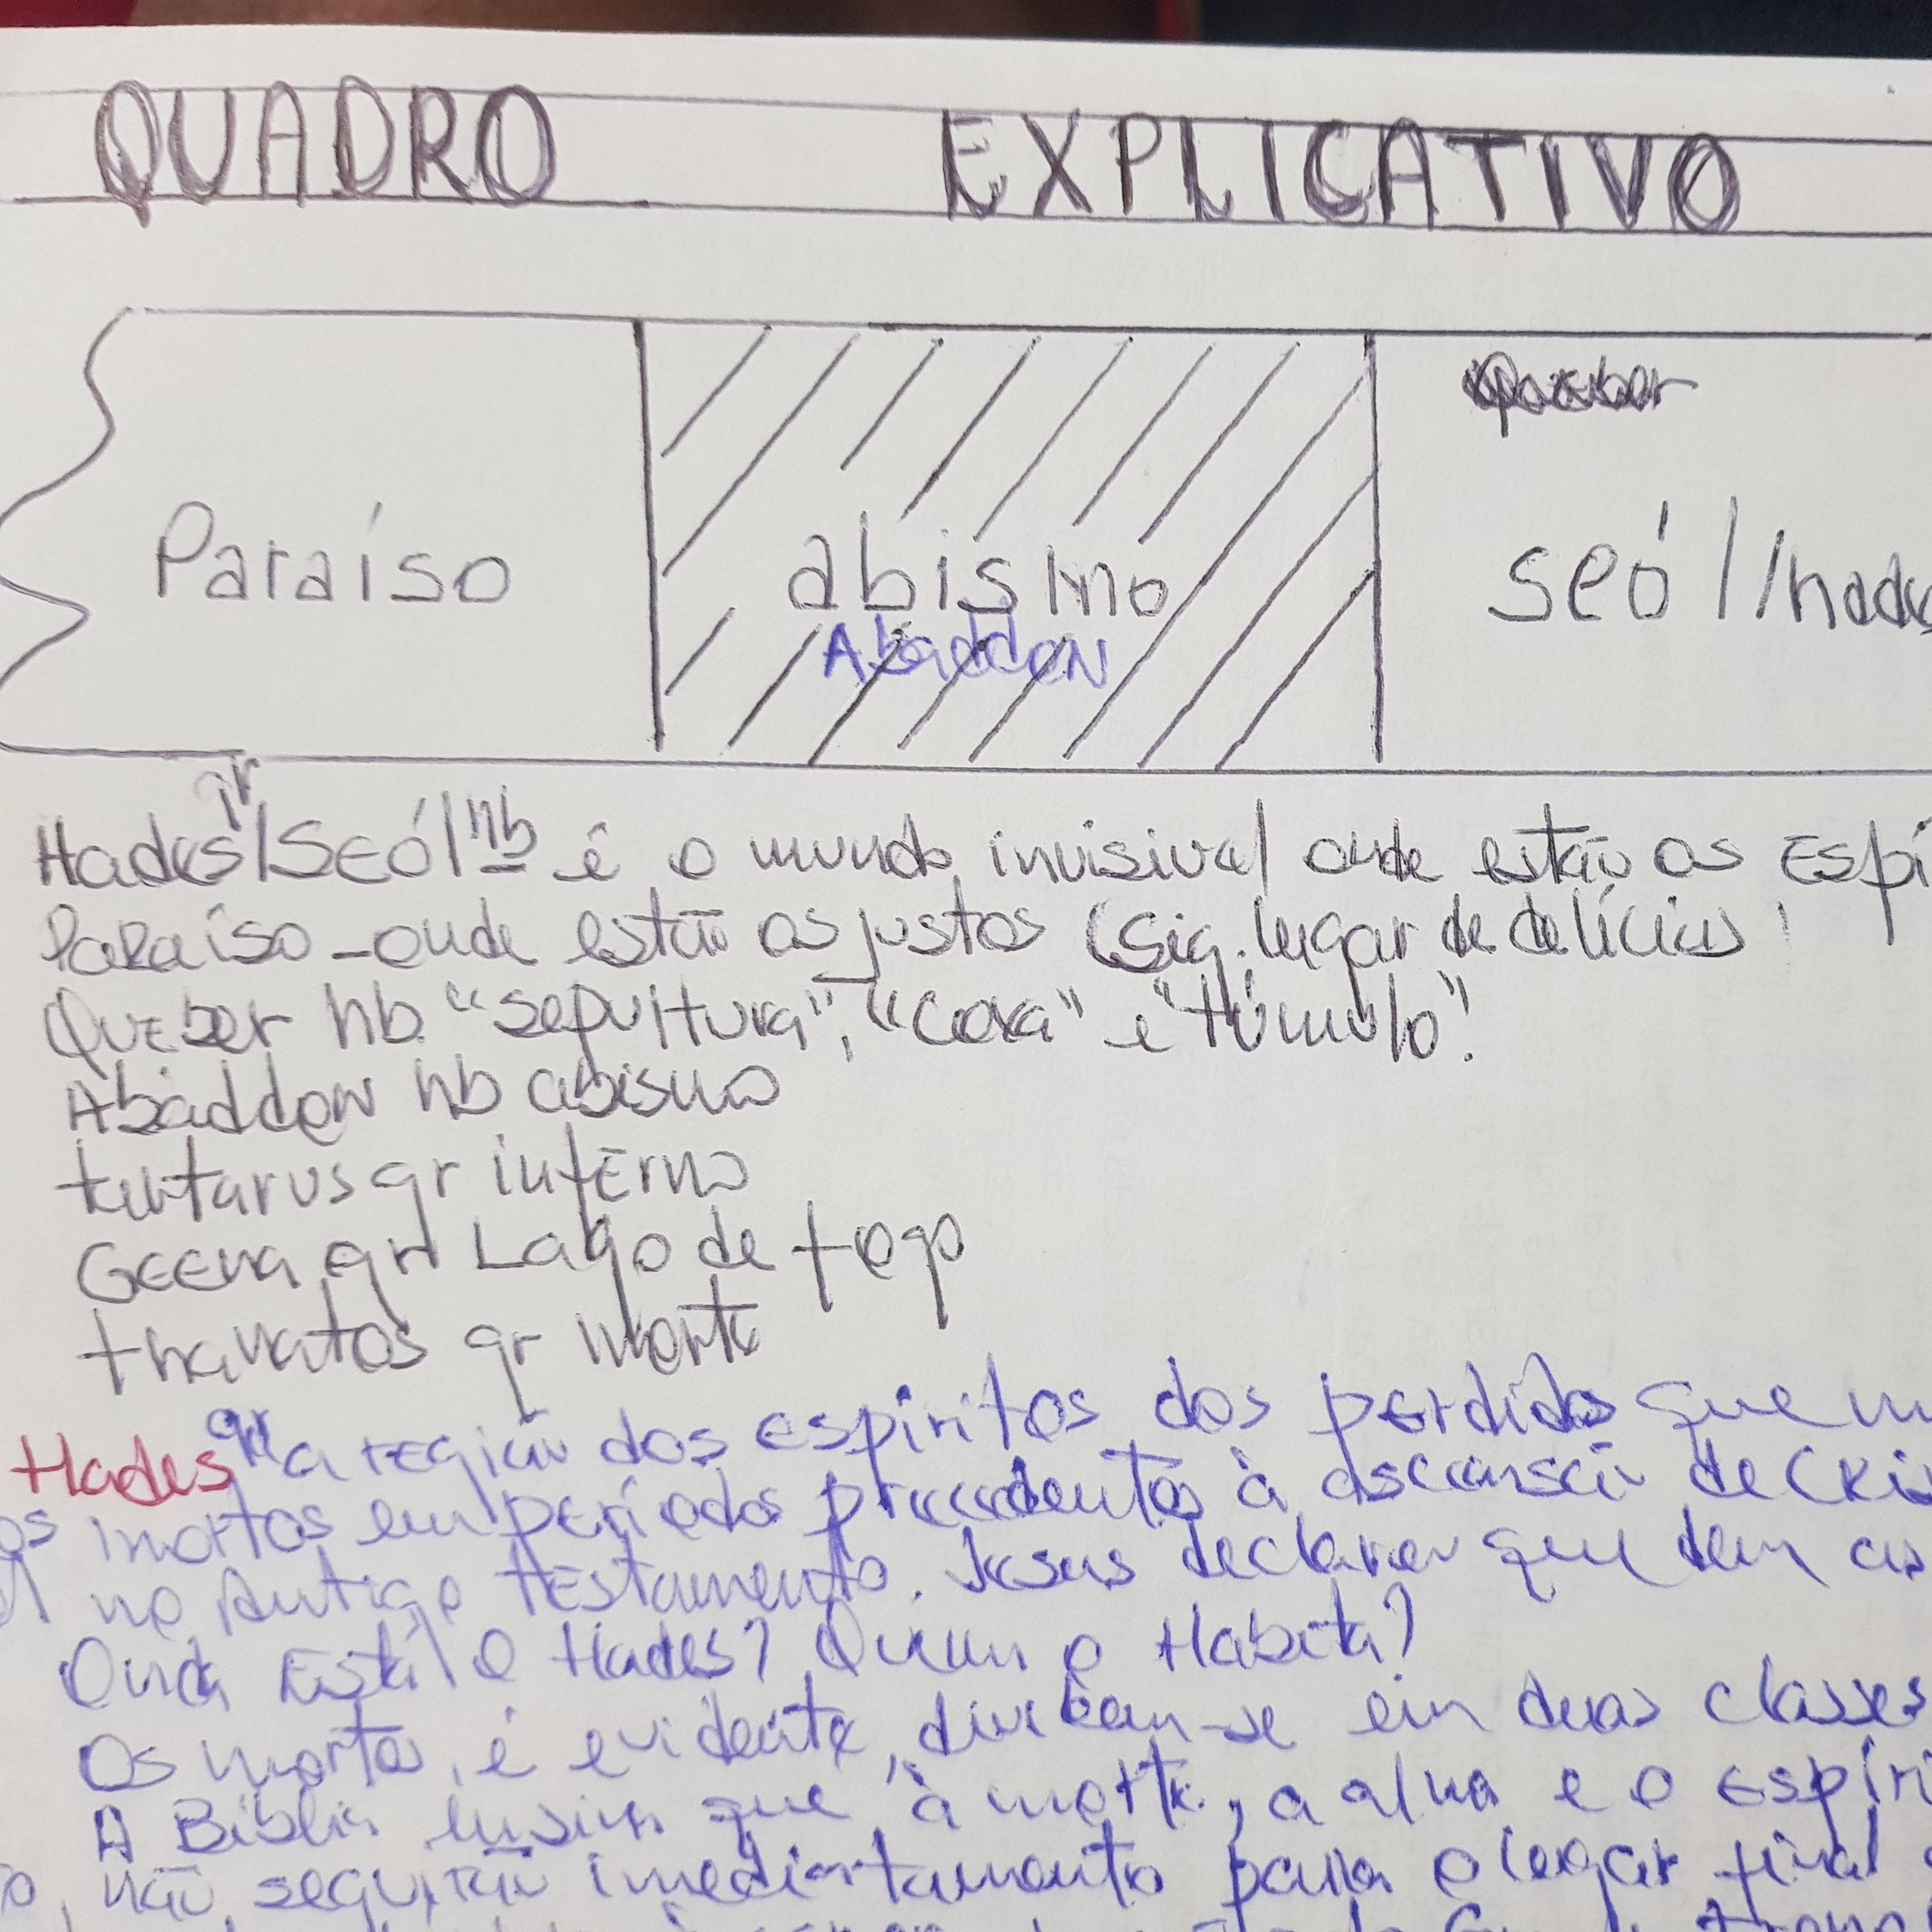 QUADRO EXPLICATIVO
Queber
Paraíso abismo seól/hades
Abaddon
Hades gr/SEÓl hb é o mundo invisival onde estão os Espí
Paraíso - onde estão os justos (sig. lugar de delícias)
QuEber hb. "sepultura", "Cova" e "túmulo".
Abaddon hb abismo
tartarus gr infErno
GEEna gr Lago de fogo
thanatos gr morte
Hades gr a rEgião dos Espíritos dos pErdidos que m
os mortos em pEríodos precedentes à ascensão de CRis
no Antigo tEstamento. Jesus declarou que dem as
Onde Está o Hades? Quem o Habita?
Os mortos, é evidente, dividem-se em duas classes
A Bíblia Ensina que à morte, a alma e o Espíri
não seguirão imediatamente para o lugar final